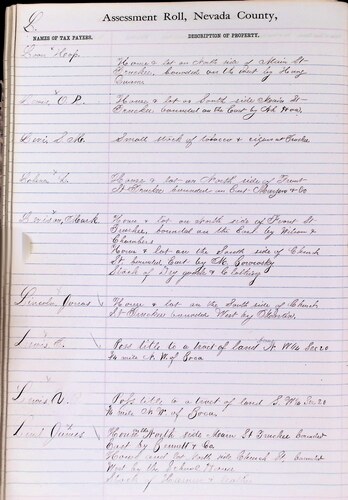 L
Assessment Roll, Nevada County,
NAMES OF TAX PAYERS.
DESCRIPTION OF PROPERTY.
House & lot on North side of Main St
Truckee bounded on the West by Hong
House & lot on South side Main St
Truckee bounded on the East by Ah
Levis S. M. Small stock of tobacco & cigars at Truckee
House & lot on North side of Front
St Truckee bounded on East & Co
Levison, Mark House & lot on North side of Front St
Truckee, bounded on the East by Wilson &
Chambers
House & lot on the South side of Church
St bounded East by M.
Stock of Dry goods & Clothing
Lincoln Jonas House & lot on the South side of Church
St Truckee bounded West by
Lewis E. Poss title to a tract of land N W ¼ Sec 20
¾ mile N. W. of Boca
Lewis N. Poss title to a tract of land S. W ¼ Sec 20
¾ mile N. W. of Boca.
James House North side St Truckee bounded
East by & Co
House and lot South side Church St, bounded
West by the School House
Stock of